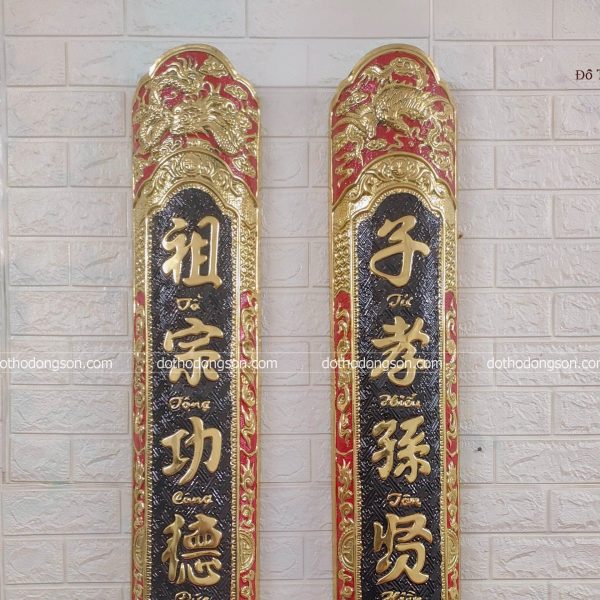 Đồ T
祖
Tổ
宗
Tông
功
Công
德
Đức
子
Tử
孝
Hiếu
孫
Tôn
贤
Hiền
dothodongson.com
dothodongson.com
dothodongson.com